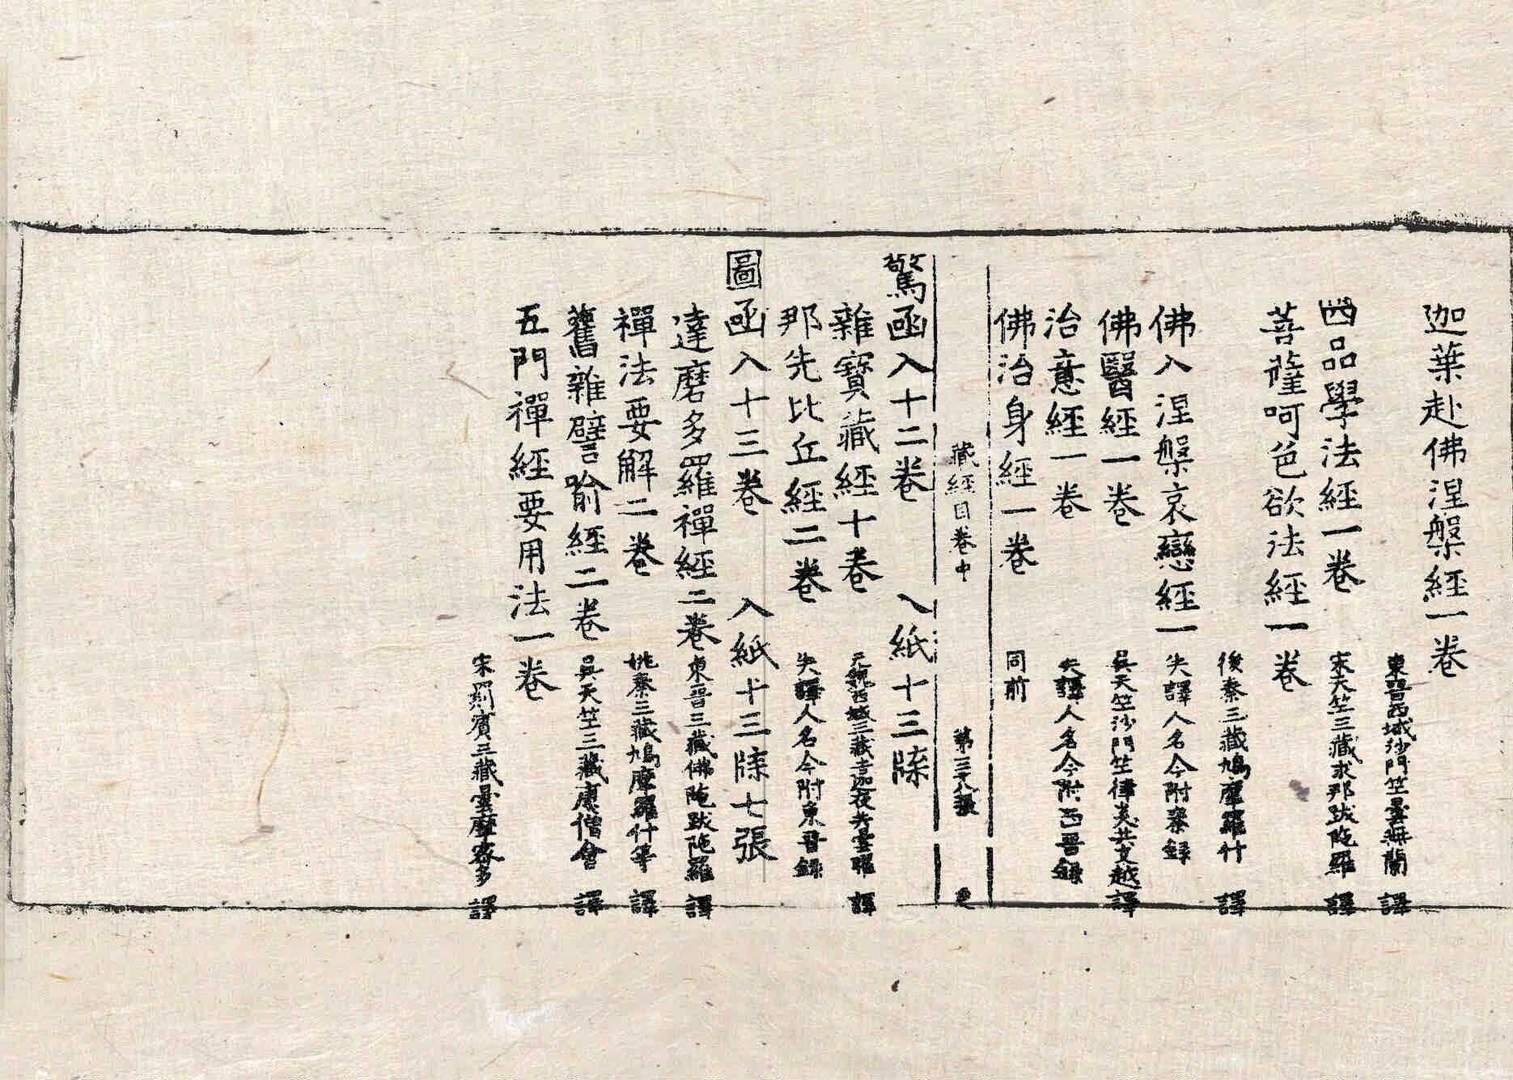 迦葉赴佛涅槃經一卷
東晉西域沙門竺曇無蘭 譯
四品學法經一卷
宋天竺三藏求那跋陀羅 譯
菩薩呵色欲法經一卷
後秦三藏鳩摩羅什 譯
佛入涅槃哀戀經一
失譯人名今附秦録
佛醫經一卷
吳天竺沙門竺律炎共支越譯
治意經一卷
失譯人名今附西晉録
佛治身經一卷
同前
藏經目卷中 第三 張
驚函入十二卷 入紙十三牒
雜寶藏經十卷
元魏西域三藏吉迦夜共曇曜 譯
那先比丘經二卷
失譯人名今附東晉録
圖函入十三卷 入紙十三牒七張
達磨多羅禪經二卷
東晉三藏佛陁跋陁羅 譯
禪法要解二卷
姚秦三藏鳩摩羅什等 譯
舊雜譬喻經二卷
吳天竺三藏康僧會 譯
五門禪經要用法一卷
宋罽賓三藏曇摩蜜多 譯